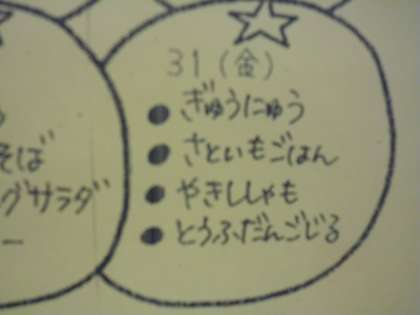 そば
グサラダ
ー
31(金)
●ぎゅうにゅう
●さといもごはん
●やきししゃも
●とうふだんごじる